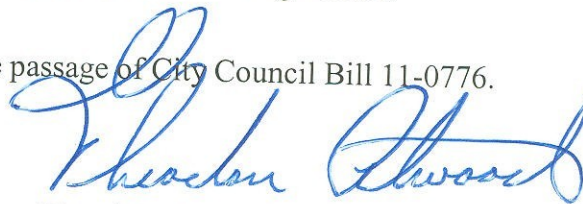 passage of City Council Bill 11-0776.
Theodore Atwood